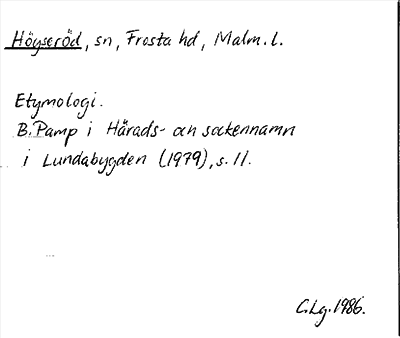 Högseröd, sn, Frosta hd, Malm. l.
Etymologi.
B. Pamp i Härads- och sockennamn
i Lundabygden (1979), s. 11.
C. Lg. 1986.